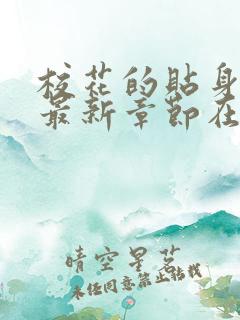 校花的贴身
最新章节在
晴空星茗
未经同意禁止转载